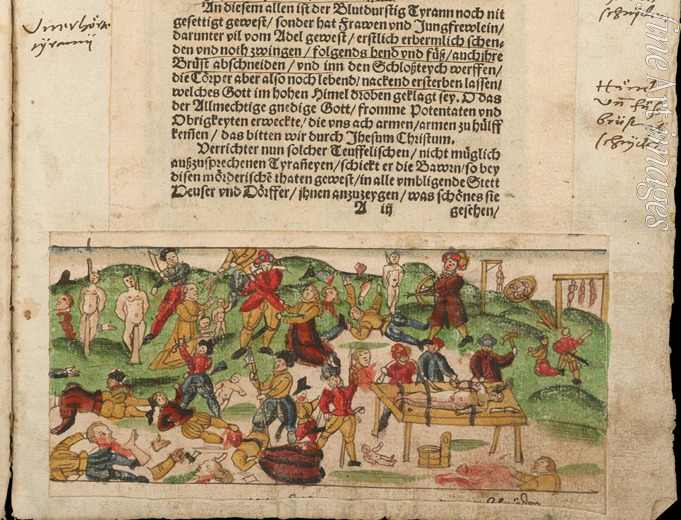 An diesem allen ist der Blutdurstig Tyrann noch nit
gesettigt gewest/ sonder hat Frawen vnd Jungfrewlein/
darunter vil vom Adel gewest/ erstlich erbermlich schen-
den vnd noth zwingen/ folgends hend vnd füß/ auch ihre
Brüst abschneiden/ vnd inn den Schloßteych werffen/
die Cörper aber also noch lebend/ nackend ersterben lassen/
welches Gott im hohen Himel droben geklagt sey. O das
der Allmechtige gnedige Gott/ fromme Potentaten vnd
Obrigkeyten erweckte/ die vns ach armen/ armen zu hülff
kem̃en/ das bitten wir durch Jhesum Christum.
Verrichter nun solcher Teuffelischen/ nicht müglich
außzusprechenen Tyrañeyen/ schickt er die Bawrn/ so bey
disen mörderischẽ thaten gewest/ in alle vmbligende Stett
Heuser vnd Dörffer/ ihnen anzuzeygen/ was schönes sie
A iij
gesehen/
Vnerhörte
tyranij
Hend
vñ füß
brüst
fine Art images